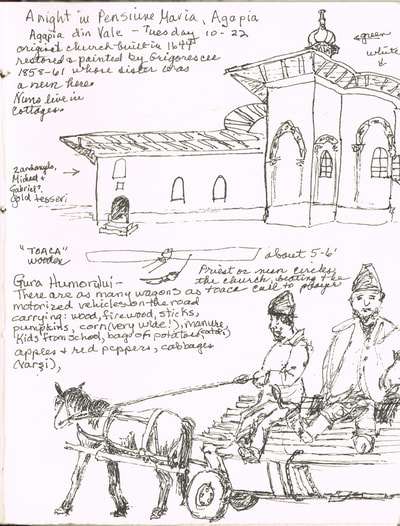 A night in Pensiune Maria, Agapia
Agapia din Vale - Tuesday 10-22
original church built in 1644
restored & painted by Grigorescu
1858-61 whose sister was
a nun here.
Nuns live in
Cottages.
green
white
2 archangels,
Michael &
Gabriel?
Gold tesseri
"TOACA"
wooden
about 5-6'
Priest or nun circles
the church beating the
toaca call to prayer
Gura Humorului -
There are as many wagons as
motorized vehicles on the road
carrying: wood, firewood, sticks,
pumpkins, corn (very wide!), manure,
Kids from school, bags of potatoes,
apples & red peppers, cabbages
(Varsi),